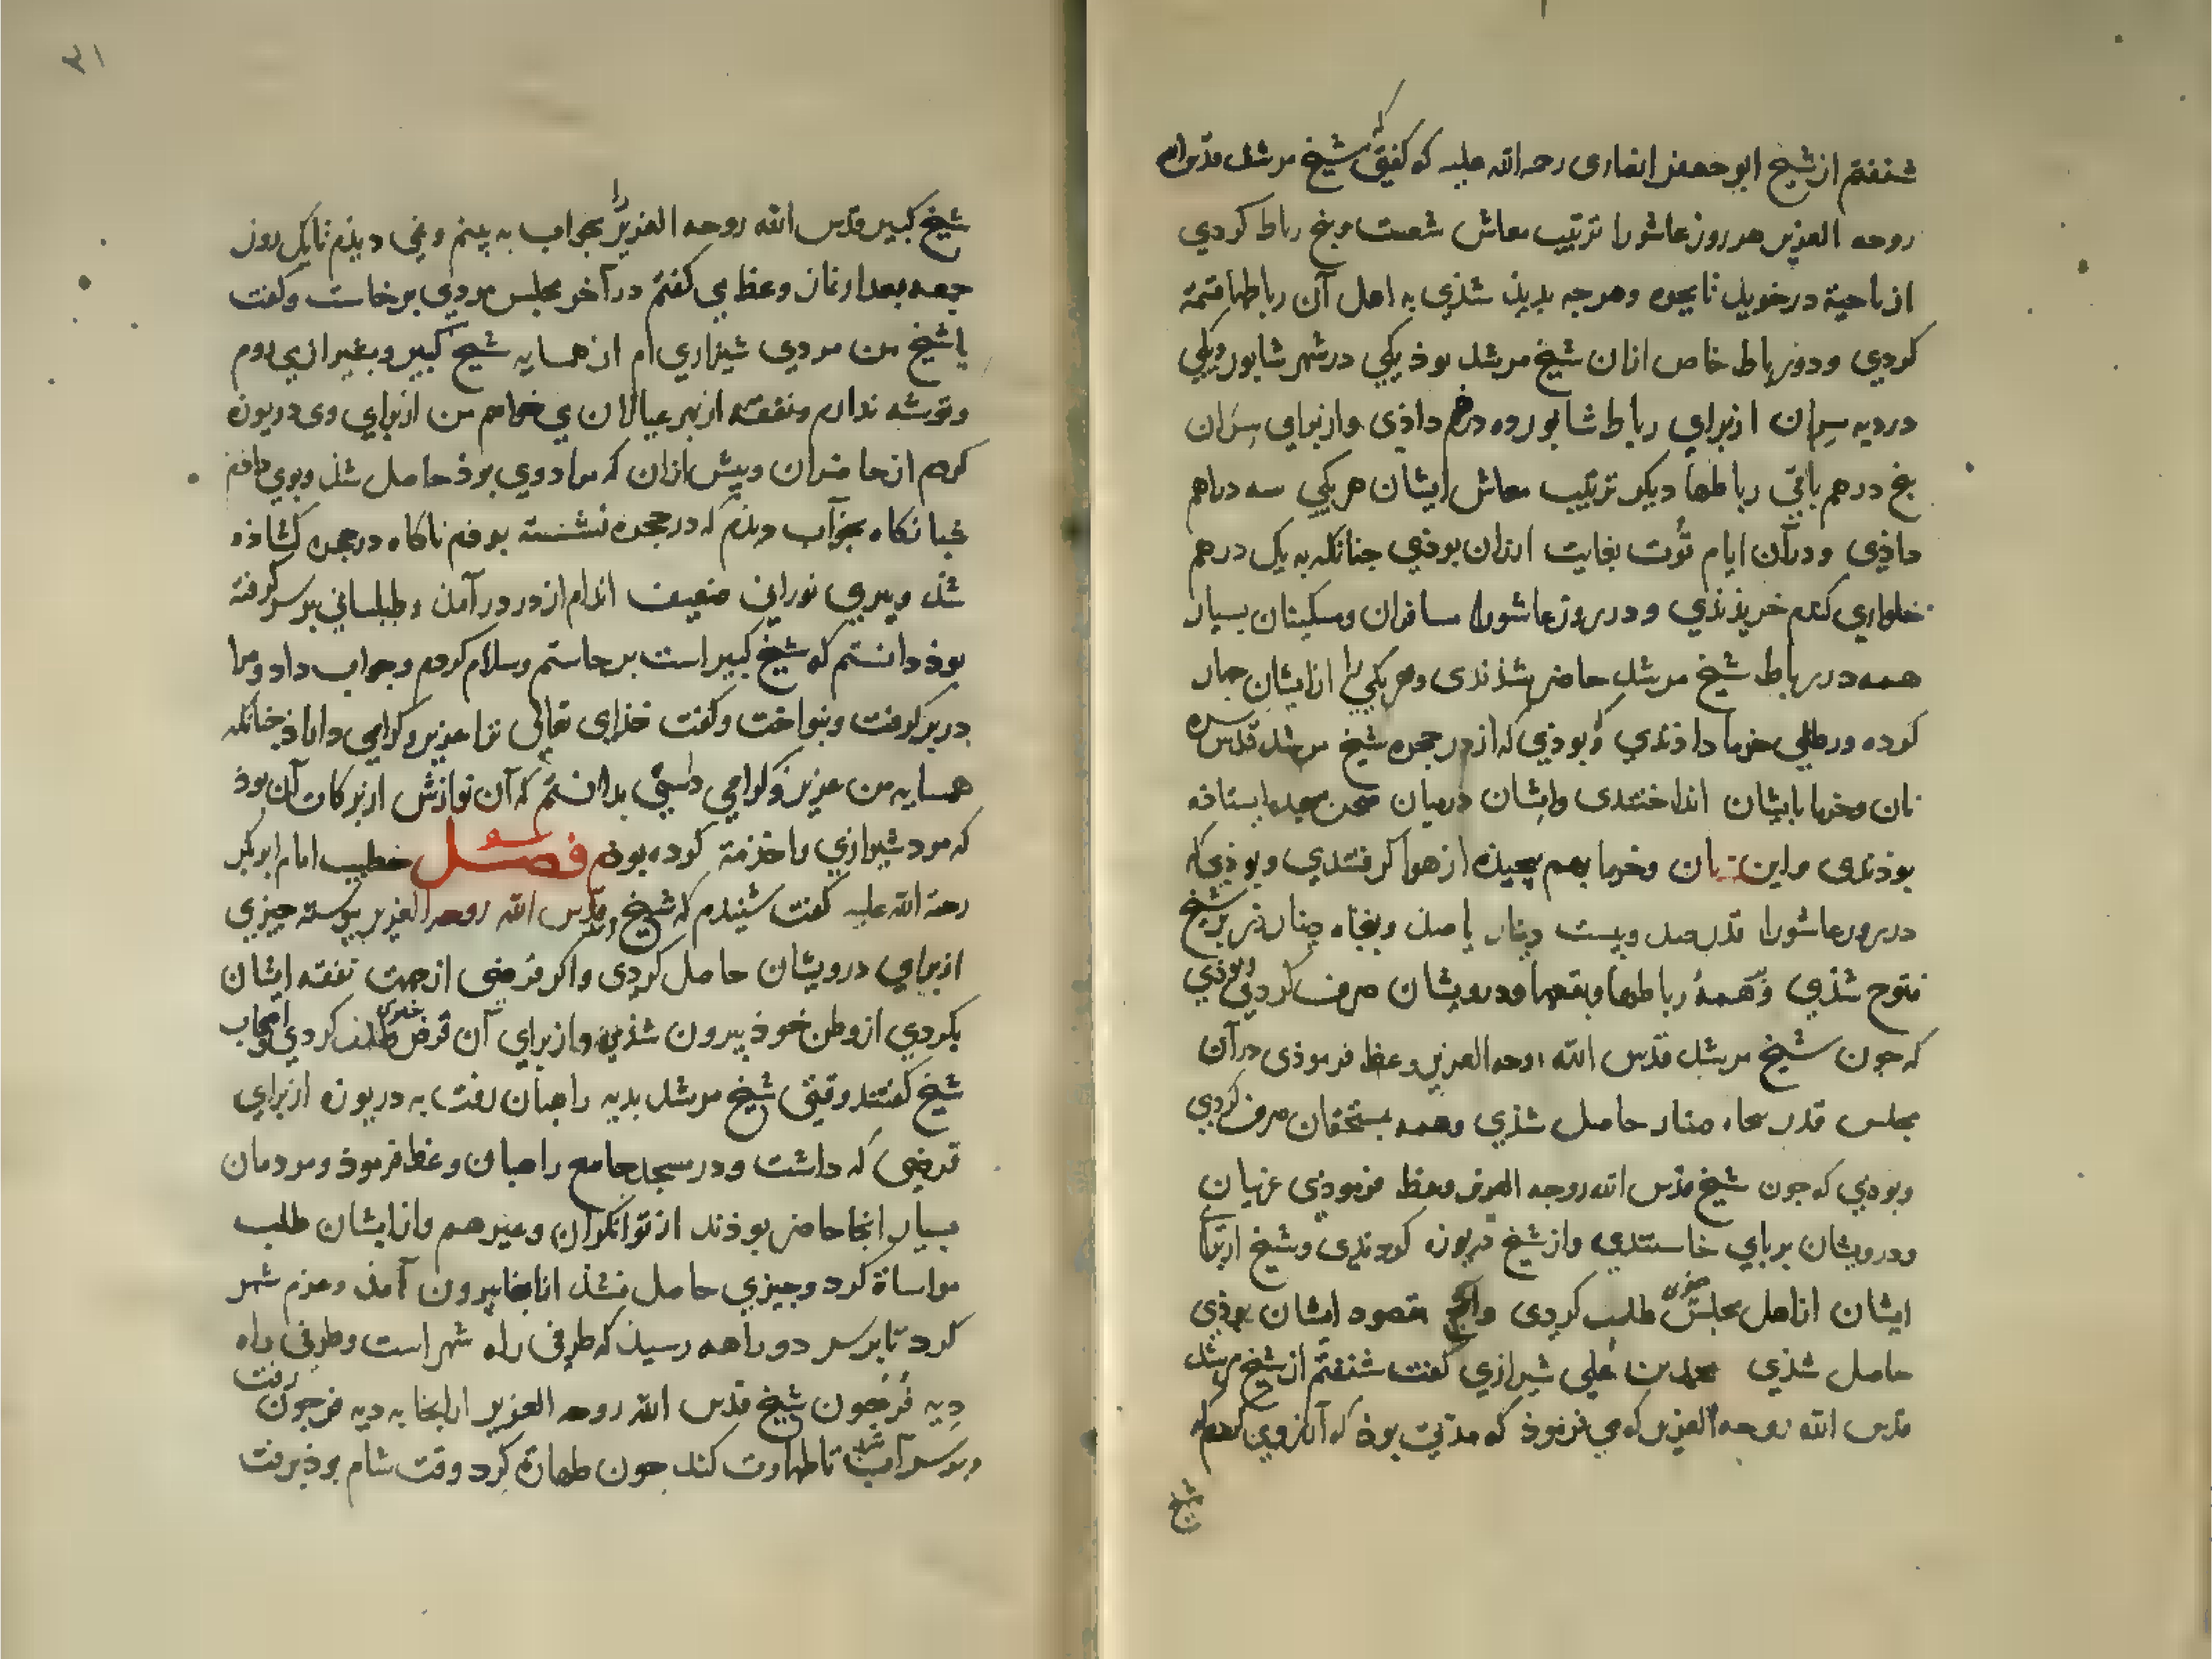 شنفتم از شیخ ابو جعفر انصاری رحمة الله علیه که گفتی شیخ مرشد قدس الله
روحه العزیز هر روز عاشورا ترتیب معاش شصت و پنج رباط کردی
از ناحیة درخوید تا بحره وهرجه بدیذ شذی به اهل آن رباطها قسمة
کردی ودو رباط خاص ازان شیخ مرشد بوذ یکی در شهر شابور ویکی
در دیه سران از برای رباط شابور ده درهم داذی واز برای سران
پنج درهم باقی رباطها دیکر ترتیب معاش ایشان هر یکی سه درهم
داذی ودرآن ایام قوت بغایت ارزان بوذی جنانکه به یک درهم
خلواری کندم خریذندی ودر روز عاشورا مسافران ومسکینان بسیار
همه در رباط شیخ مرشد حاضر شذندی وهر یکی را ازایشان جهار
کرده ورطلی خرما داذندی وبوذی که از در حجره شیخ مرشد قدس سره
نان وخرما بایشان انداختندی وایشان درمیان صحن مسجد ایستاده
بوذندی واین نان وخرما بهم بجیذه از هوا کرفتندی وبوذی که
در روز عاشورا قدر صد وبیست دینار یا صد وپنجاه دینار زر بر شیخ
فتوح شذی وهمه رباطها وبقعها ودرویشان صرف کردی وبوذی
که جون شیخ مرشد قدس الله روحه العزیز وعظ فرموذی درآن
مجلس قدر پنجاه دینار حاصل شذی وهمه بمستحقان صرف کردی
وبوذی که جون شیخ قدس الله روحه العزیز وعظ فرموذی غریبان
ودرویشان بر بای خاستندی واز شیخ دریوزه کردندی وشیخ از برای
ایشان از اهل مجلس طلب کردی مقصود ایشان بوذی
حاصل شذی محمد بن علی شیرازی کفت شنفتم از شیخ مرشد
قدس الله روحه العزیز که می فرموذ که مدتی بوذ که آرزوی کردم که
شیخ
شیخ کبیر قدس الله روحه العزیز را بخواب به بینم ونمی دیذم تا یک روز
جمعه بعد از نماز وعظ می کفتم در آخر مجلس مردی برخاست وکفت
یا شیخ من مردی شیرازی ام از همسایه شیخ کبیر وبسفر ازپی روم
وتوشه ندارم ونفقه از بهر عیالان می خواهم من از برای وی دریوزه
کردم از حاضران وپیش ازان که مرادوی بوذ حاصل شذ وبوی داذم
شبانکاه بخواب دیذم که در حجره نشسته بوذم ناکاه در حجره کشاذه
شذ وپیری نورانی ضعیف اندام از در درآمذ وطیلسانی بر سر کرفته
بوذ دانستم که شیخ کبیر است برخاستم وسلام کردم وجواب داد ومرا
دربر کرفت وبنواخت وکفت خذای تعالی ترا عزیز وکرامی داراذ جنانکه
همسایه من عزیز وکرامی داشتی بدانستم که آن نوازش از برکات آن بوذ
که مرد شیرازی را خذمة کرده بوذم فصل خطیب امام ابوبکر
رحمة الله علیه کفت شنیدم که شیخ مرشد قدس الله روحه العزیز پیوسته جیزی
از برای درویشان حاصل کردی واکر قرضی از جهت نفقه ایشان
بکردی از وطن خوذ بیرون شذی واز برای آن قرض طلب کردی اصحاب
شیخ کفتند وقتی شیخ مرشد بدیه راهبان رفت به دریوزه از برای
قرضی که داشت ودر مسجد جامع راهبان وعظ فرموذ ومردمان
بسیار انجا حاضر بوذند از توانکران وغیرهم وازایشان طلب
مواساة کرد وجیزی حاصل نشذ ازانجا بیرون آمذ وعزم شهر
کرد تا بر سر دو راهه رسیذ که طرفی راه شهر است وطرفی راه
دیه فرجون شیخ قدس الله روحه العزیز ازانجا به دیه فرجون رفت
وبر سر آب شذ تا طهارت کند جون طهارة کرد وقت شام بوذ برفت